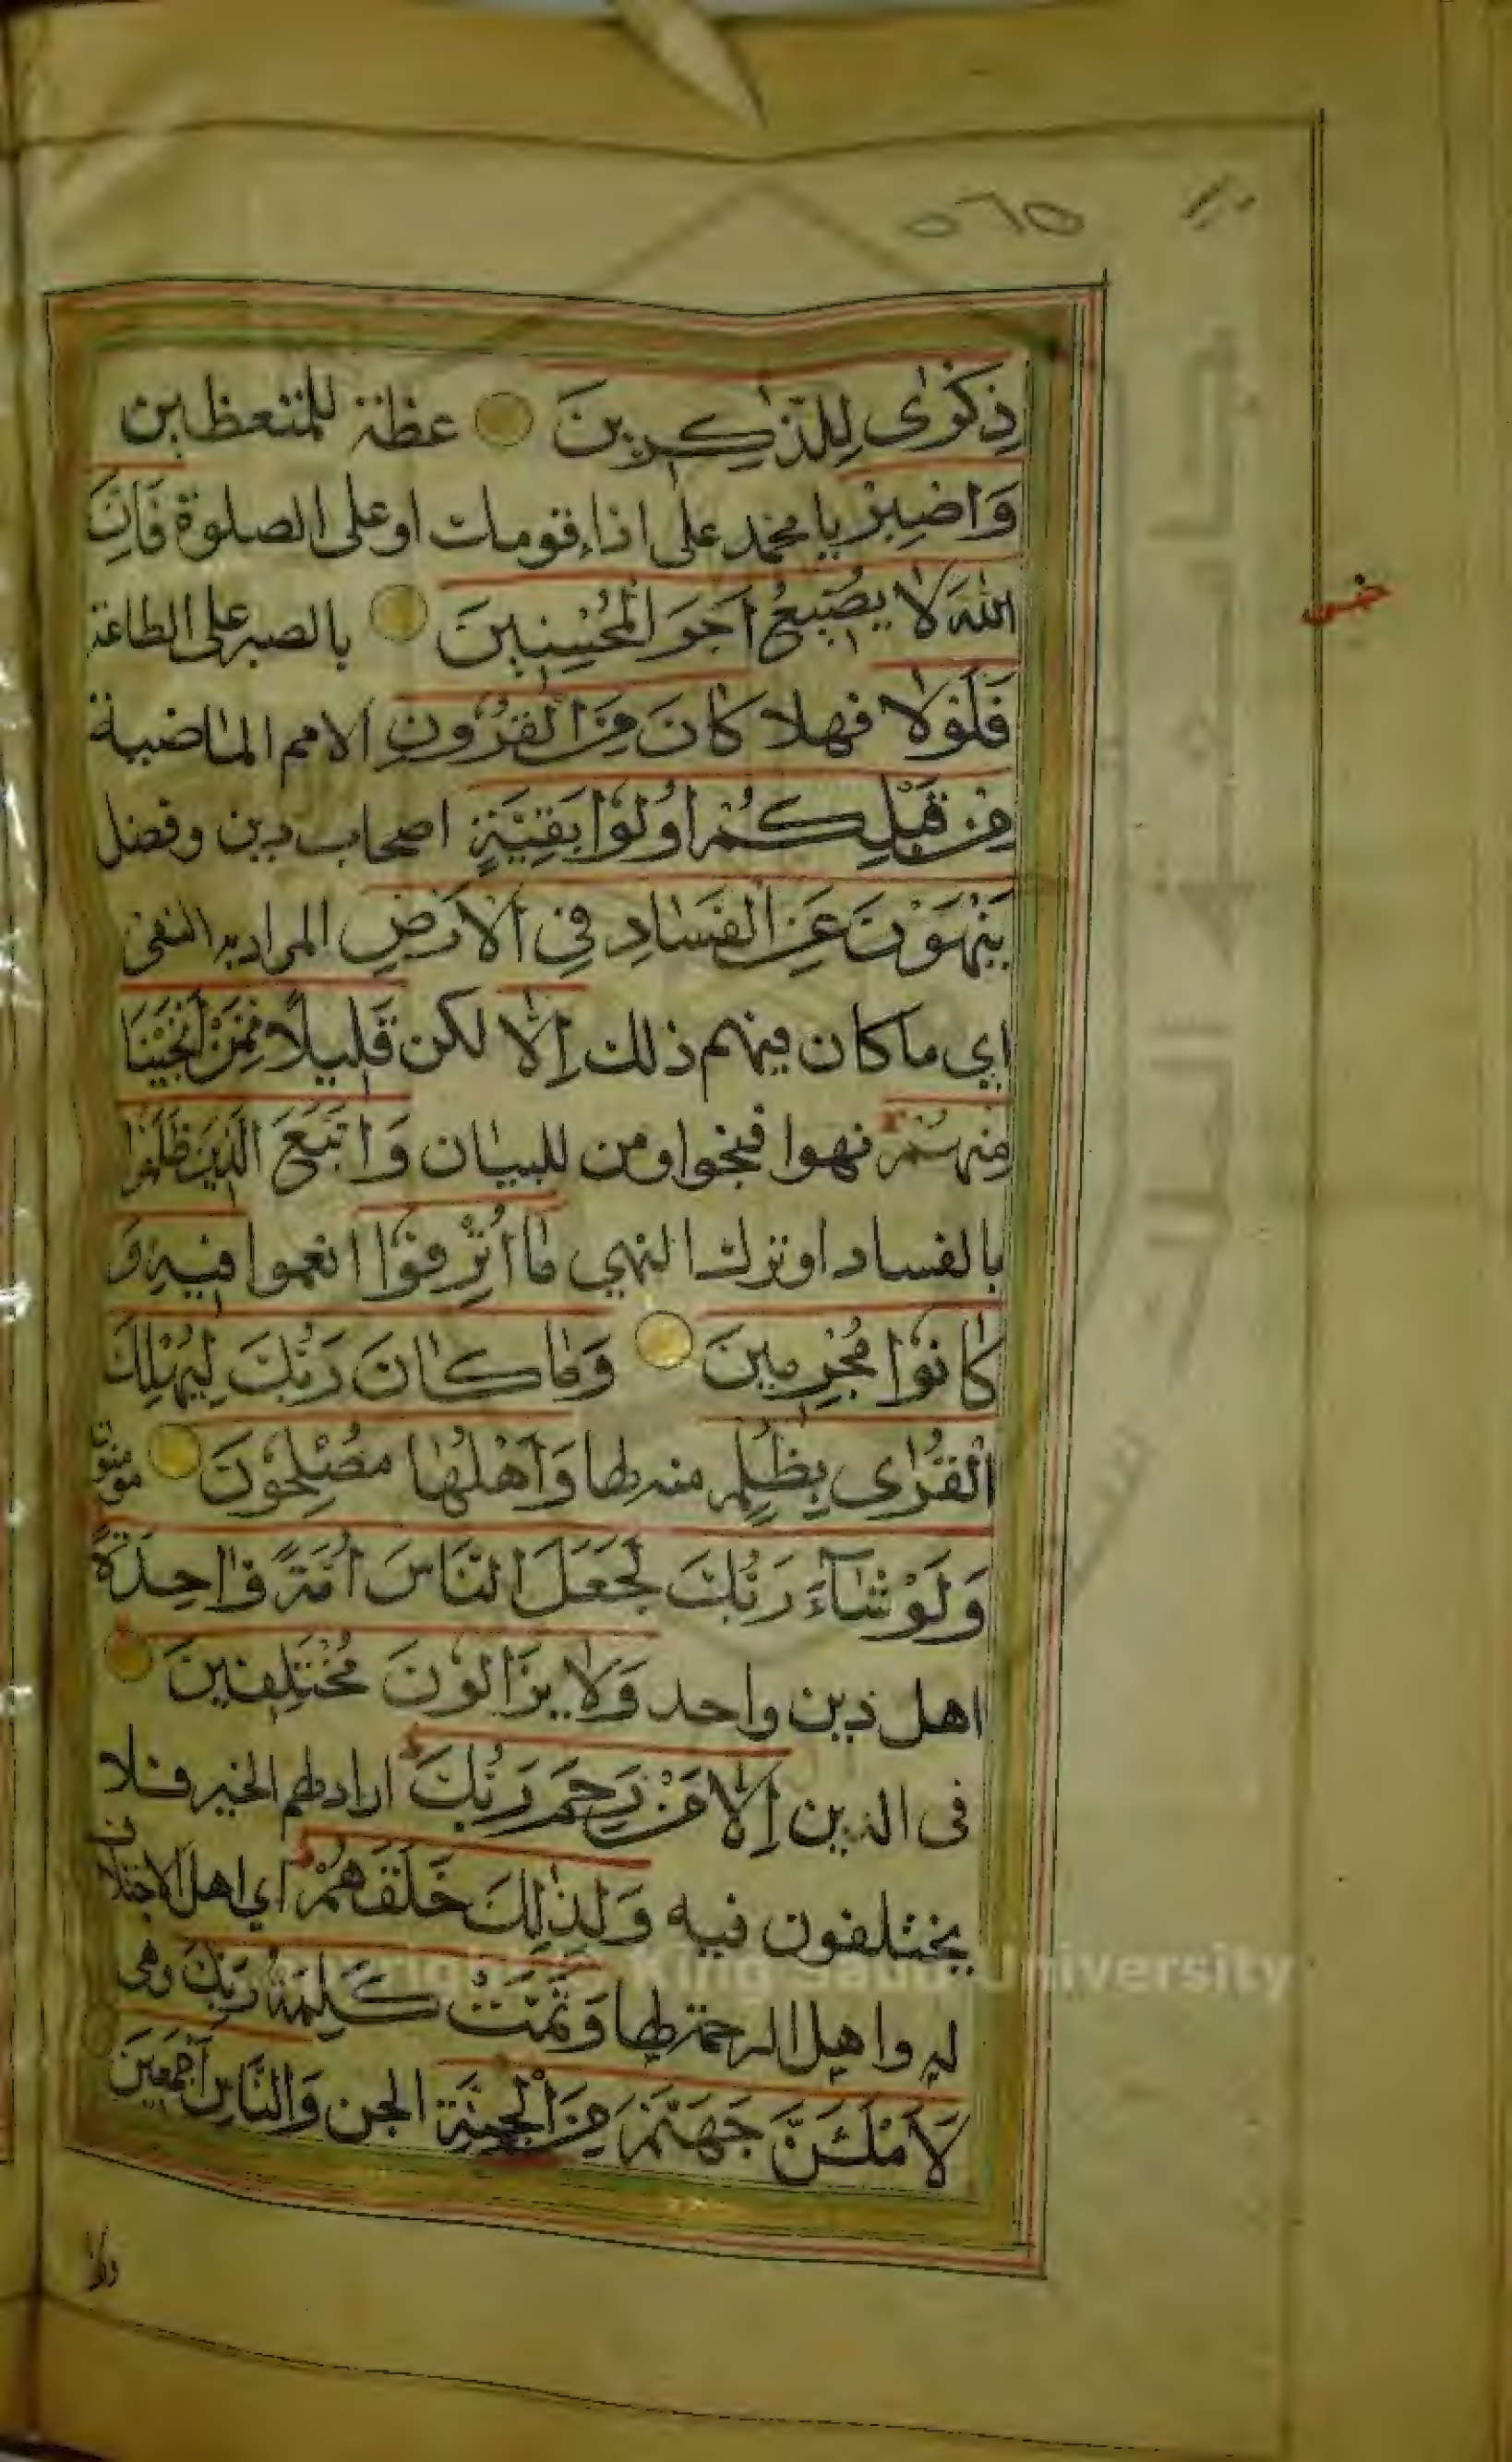 ٥٦٥
ذِكْرٰى لِلذّٰكِرِينَ عظة للمتعظين
وَاصْبِرْ يا محمد على اذاء قومك او على الصلوة فَاِنَّ
اللّٰهَ لَا يُضِيعُ اَجْرَ الْمُحْسِنِينَ بالصبر على الطاعة
فَلَوْلَا فهلا كَانَ مِنَ الْقُرُونِ الامم الماضية
مِنْ قَبْلِكُمْ اُولُوا بَقِيَّةٍ اصحاب دين وفضل
يَنْهَوْنَ عَنِ الْفَسَادِ فِى الْاَرْضِ المراد به النفى
اي ما كان فيهم ذلك اِلَّا لكن قَلِيلًا مِمَّنْ اَنْجَيْنَا
مِنْهُمْ نهوا فنجوا ومن للبيان وَاتَّبَعَ الَّذِينَ ظَلَمُوا
بالفساد او ترك النهي مَا اُتْرِفُوا انعموا فِيهِ وَ
كَانُوا مُجْرِمِينَ وَمَا كَانَ رَبُّكَ لِيُهْلِكَ
الْقُرٰى بِظُلْمٍ منه لها وَاَهْلُهَا مُصْلِحُونَ مومنون
وَلَوْ شَآءَ رَبُّكَ لَجَعَلَ النَّاسَ اُمَّةً وَاحِدَةً
اهل دين واحد وَلَا يَزَالُونَ مُخْتَلِفِينَ
فى الدين اِلَّا مَنْ رَحِمَ رَبُّكَ اراد لهم الخير فلا
يختلفون فيه وَلِذٰلِكَ خَلَقَهُمْ اي اهل الاختلاف
له واهل الرحمة لها وَتَمَّتْ كَلِمَةُ رَبِّكَ وهى
لَاَمْلَئَنَّ جَهَنَّمَ مِنَ الْجِنَّةِ الجن وَالنَّاسِ اَجْمَعِينَ
خمس
King Saud University